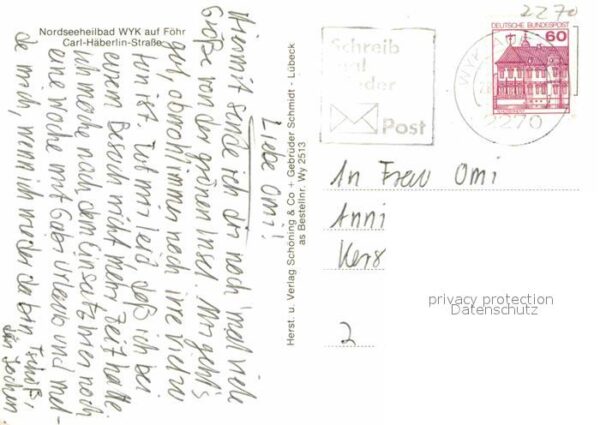 Nordseeheilbad WYK auf Föhr
Carl-Häberlin-Straße
Liebe Omi!
Hiermit sende ich dir noch 'mal viele
Grüße von der grünen Insel. Mir geht's
gut, obwohl immer noch irre viel zu
tun ist. Tut mir leid, daß ich bei
einem Besuch nicht mehr Zeit hatte.
Ich mache nach dem Einsatz hier noch
eine Woche mit Gabi Urlaub und mel-
de mich, wenn ich wieder da bin. Tschüß,
dein Jochen
Herst. u. Verlag Schöning & Co + Gebrüder Schmidt - Lübeck
as Bestellnr. Wy 2513
Schreib
mal
wieder
Post
2270
DEUTSCHE BUNDESPOST
60
WYK
2270
An Frau Omi
Anni
Kers
2
privacy protection
Datenschutz